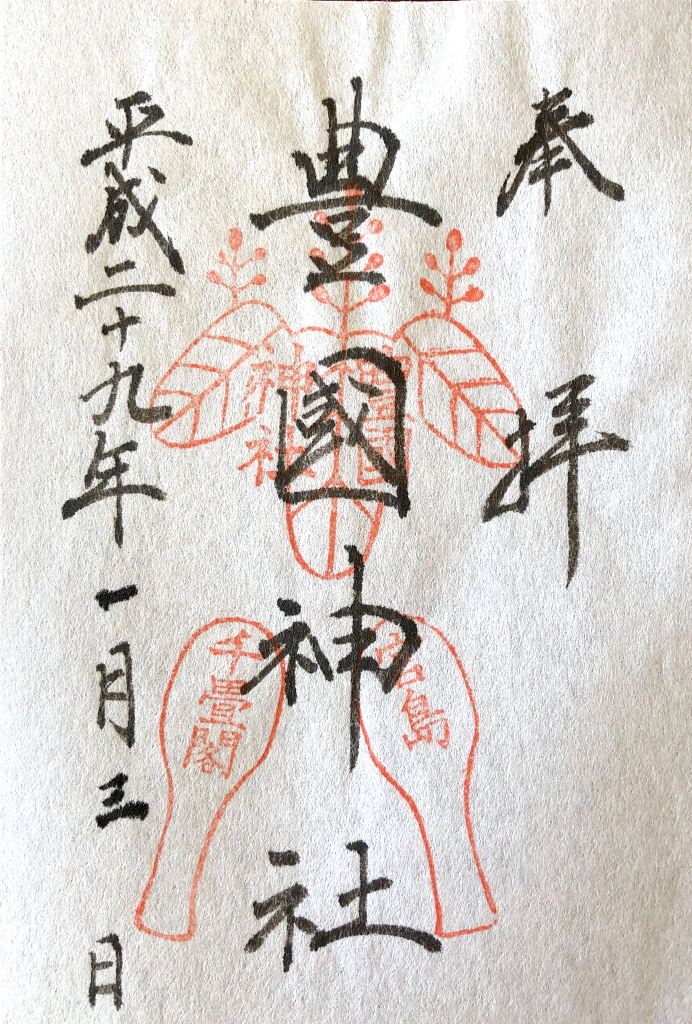 奉拝
豊國神社
平成二十九年一月三日
豊國
神社
宮島
千畳閣